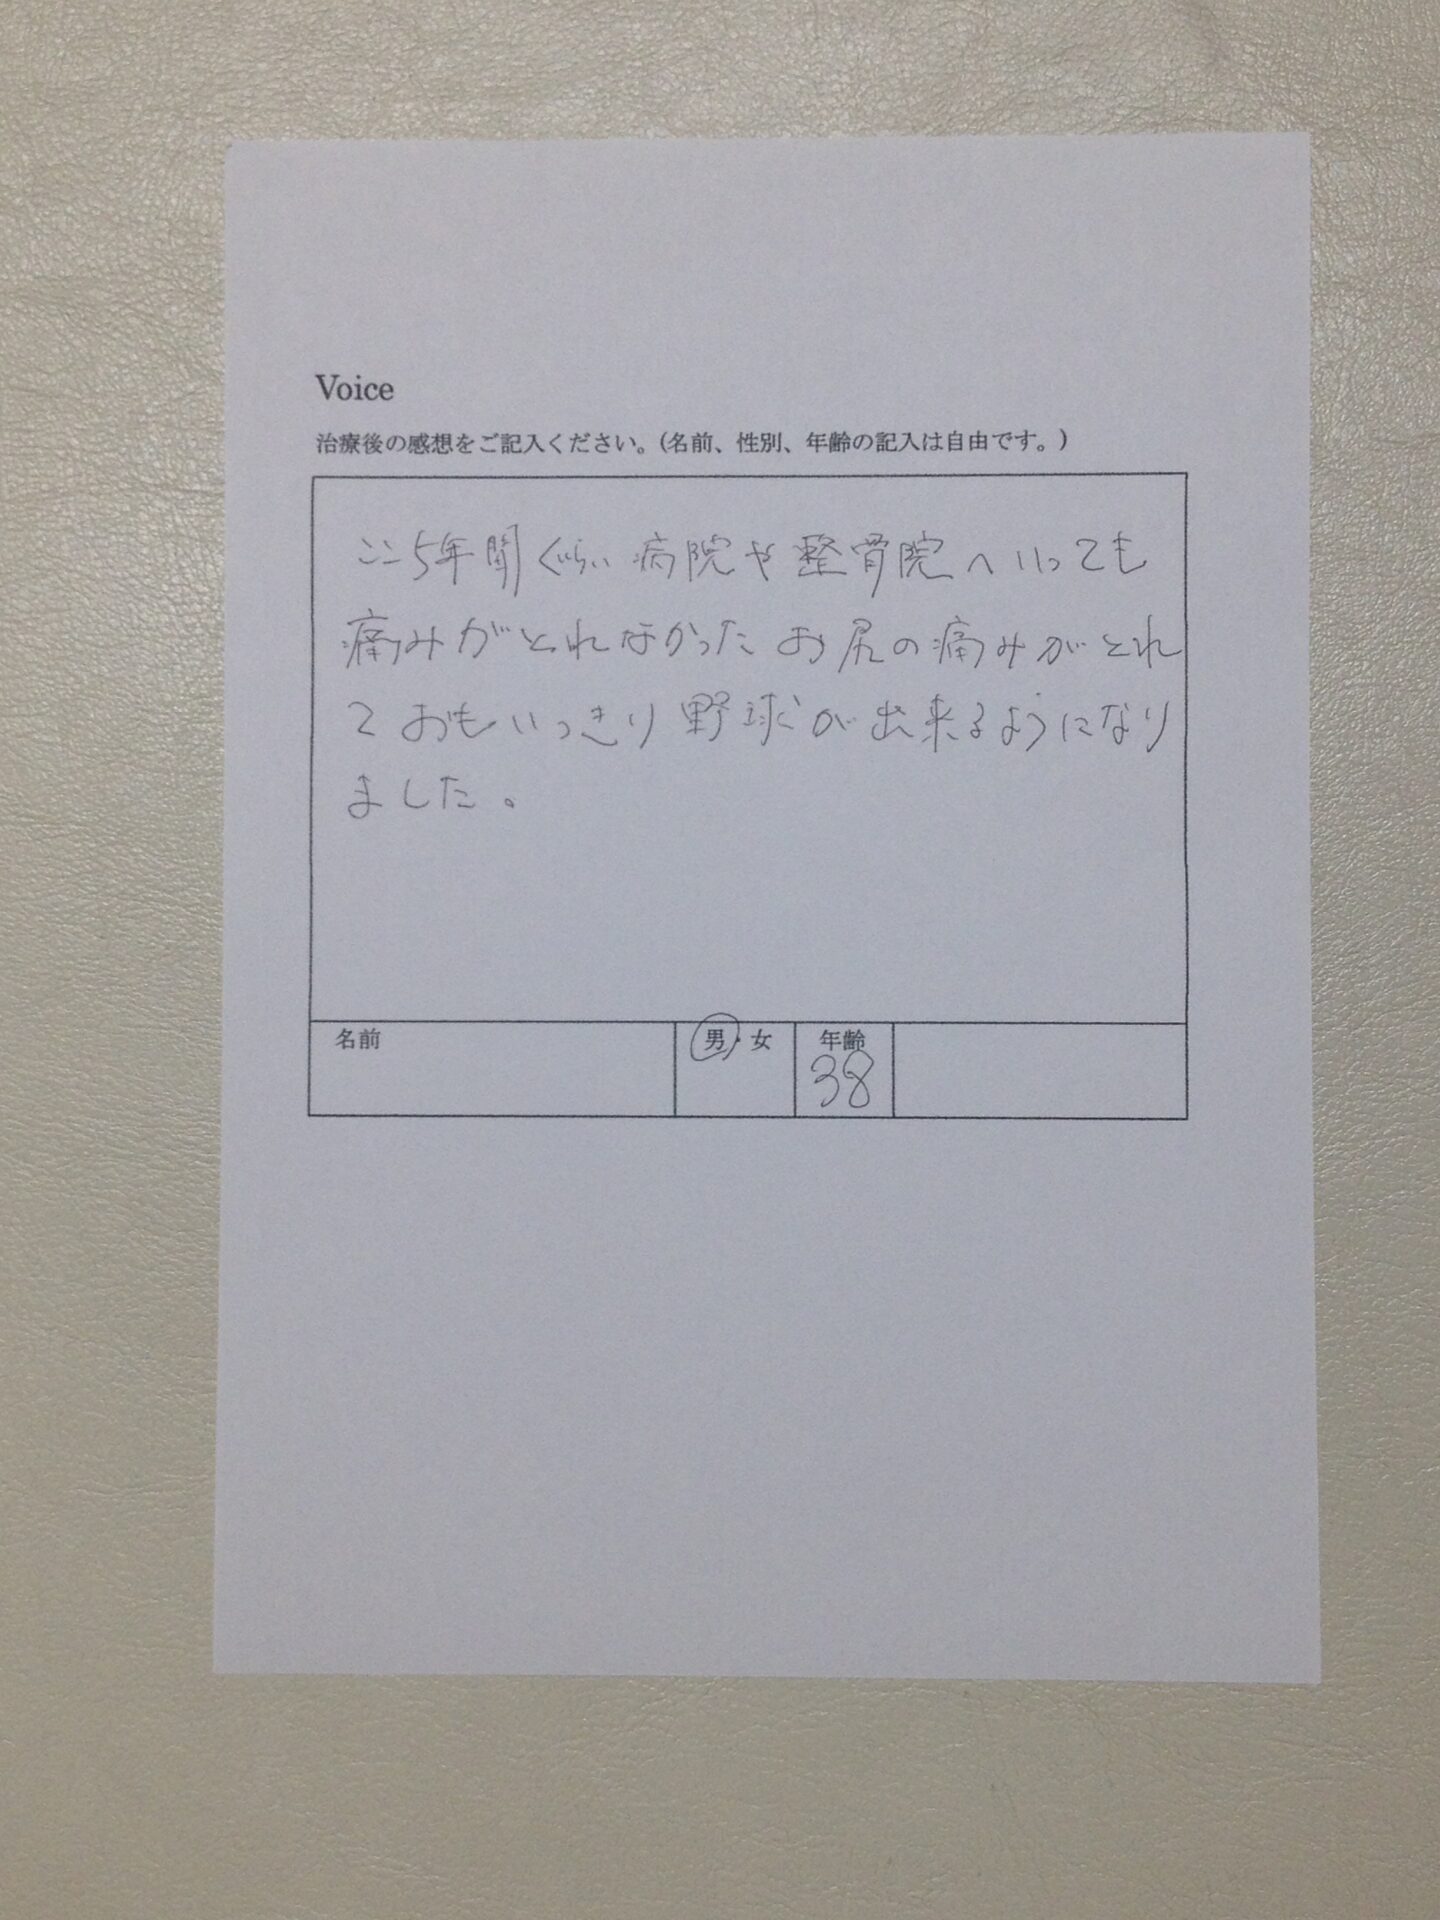 Voice
治療後の感想をご記入ください。(名前、性別、年齢の記入は自由です。)
ここ5年間ぐらい病院や整骨院へいっても
痛みがとれなかったお尻の痛みがとれ
ておもいっきり野球が出来るようになり
ました。
名前 男・女 年齢
38